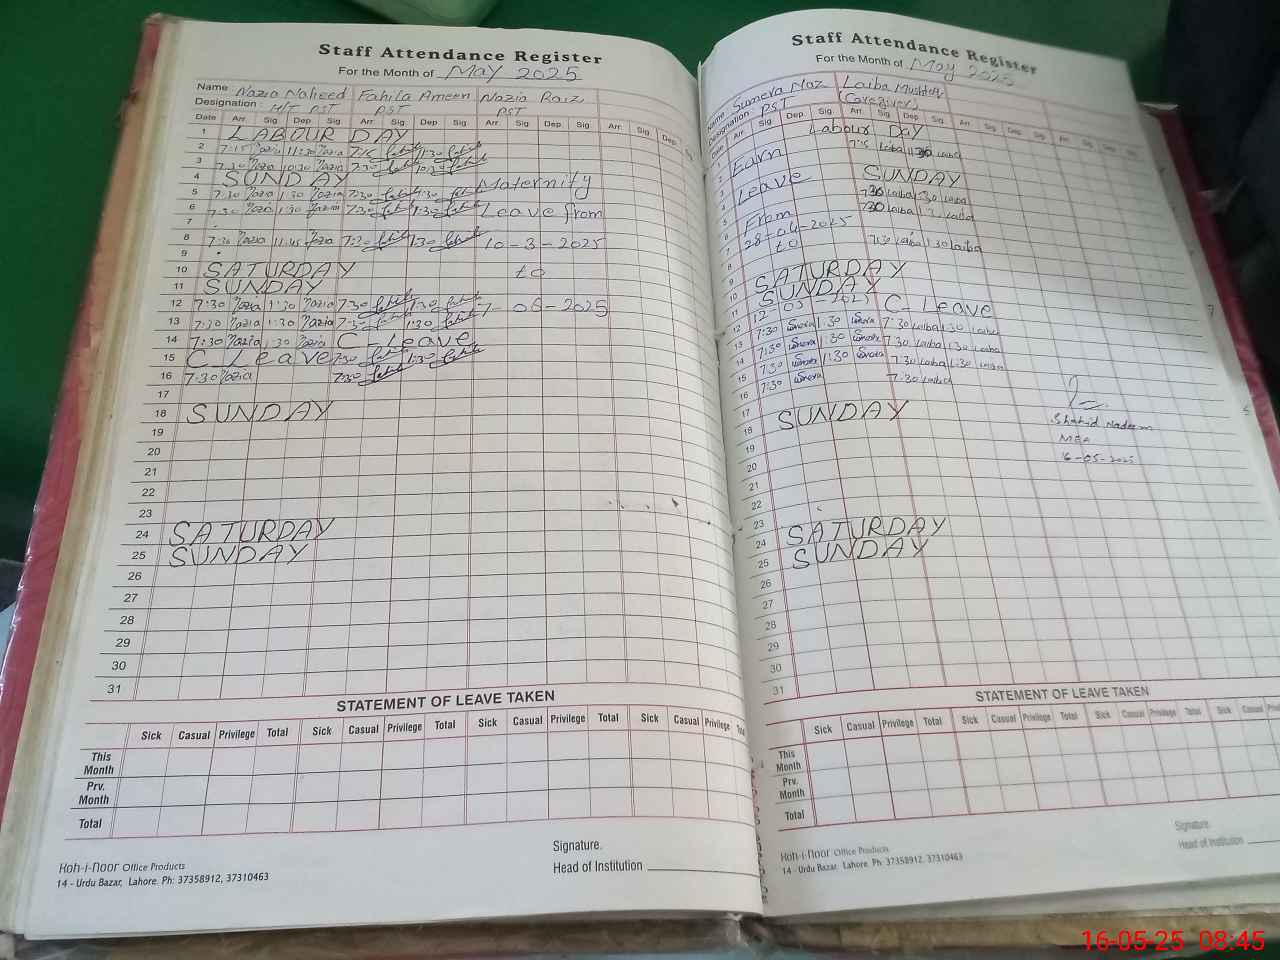 Staff Attendance Register
For the Month of May 2025
Name Nazia Naheed Fahila Ameen Nazia Raiz
Designation : H/T PST PST PST
Date Arr. Sig. Dep. Sig. Arr. Sig. Dep. Sig. Arr. Sig. Dep. Sig. Arr. Sig. Dep. Sig.
1 LABOUR DAY
2 7:15 Nazia 11:30 Nazia 7:15 1:30
3 7:30 Nazia 10:30 Nazia 7:30 10:30
4 SUNDAY
5 7:30 Nazia 1:30 Nazia 7:30 1:30 Maternity
6 7:30 Nazia 1:30 Nazia 7:30 1:30 Leave from
7
8 7:30 Nazia 11:45 Nazia 7:30 1:30 10-3-2025
9
10 SATURDAY to
11 SUNDAY
12 7:30 Nazia 1:30 Nazia 7:30 1:30 7-06-2025
13 7:30 Nazia 1:30 Nazia 7:30 1:30
14 7:30 Nazia 1:30 Nazia C-Leave
15 C Leave 7:30 1:30
16 7:30 Nazia 7:30
17
18 SUNDAY
19
20
21
22
23
24 SATURDAY
25 SUNDAY
26
27
28
29
30
31
STATEMENT OF LEAVE TAKEN
Sick Casual Privilege Total Sick Casual Privilege Total Sick Casual Privilege
This Month
Prv. Month
Total
Signature.
Head of Institution
Koh-i-noor Office Products
14 - Urdu Bazar, Lahore. Ph: 37358912, 37310463
Staff Attendance Register
For the Month of May 2025
Name Sumera Naz Laiba Mushtaq
Designation : PST (Caregiver)
Date Arr. Sig. Dep. Sig. Arr. Sig. Dep. Sig. Arr. Sig. Dep. Sig. Arr. Sig. Dep. Sig.
1 Labour DAY
2 Earn 7:15 Laiba 11:30 Laiba
3
4 Leave SUNDAY
5 7:30 Laiba 1:30 Laiba
6 From 7:30 Laiba Laiba
7 28-04-2025
8 to 7:30 Laiba 1:30 Laiba
9
10 SATURDAY
11 SUNDAY
12 12-05-2025 C-Leave
13 7:30 1:30 7:30 Laiba 1:30 Laiba
14 7:30 1:30 7:30 Laiba 1:30 Laiba
15 7:30 1:30 7:30 Laiba 1:30 Laiba
16 7:30 7:30 Laiba
17
18 SUNDAY
Shahid Nadeem
MEA
16-05-2025
19
20
21
22
23
24 SATURDAY
25 SUNDAY
26
27
28
29
30
31
STATEMENT OF LEAVE TAKEN
Sick Casual Privilege Total Sick Casual Privilege Total Sick Casual Privilege Total Sick Casual
This Month
Prv. Month
Total
Signature.
Head of Institution
Koh-i-noor Office Products
14 - Urdu Bazar, Lahore. Ph: 37358912, 37310463
16-05-25 08:45